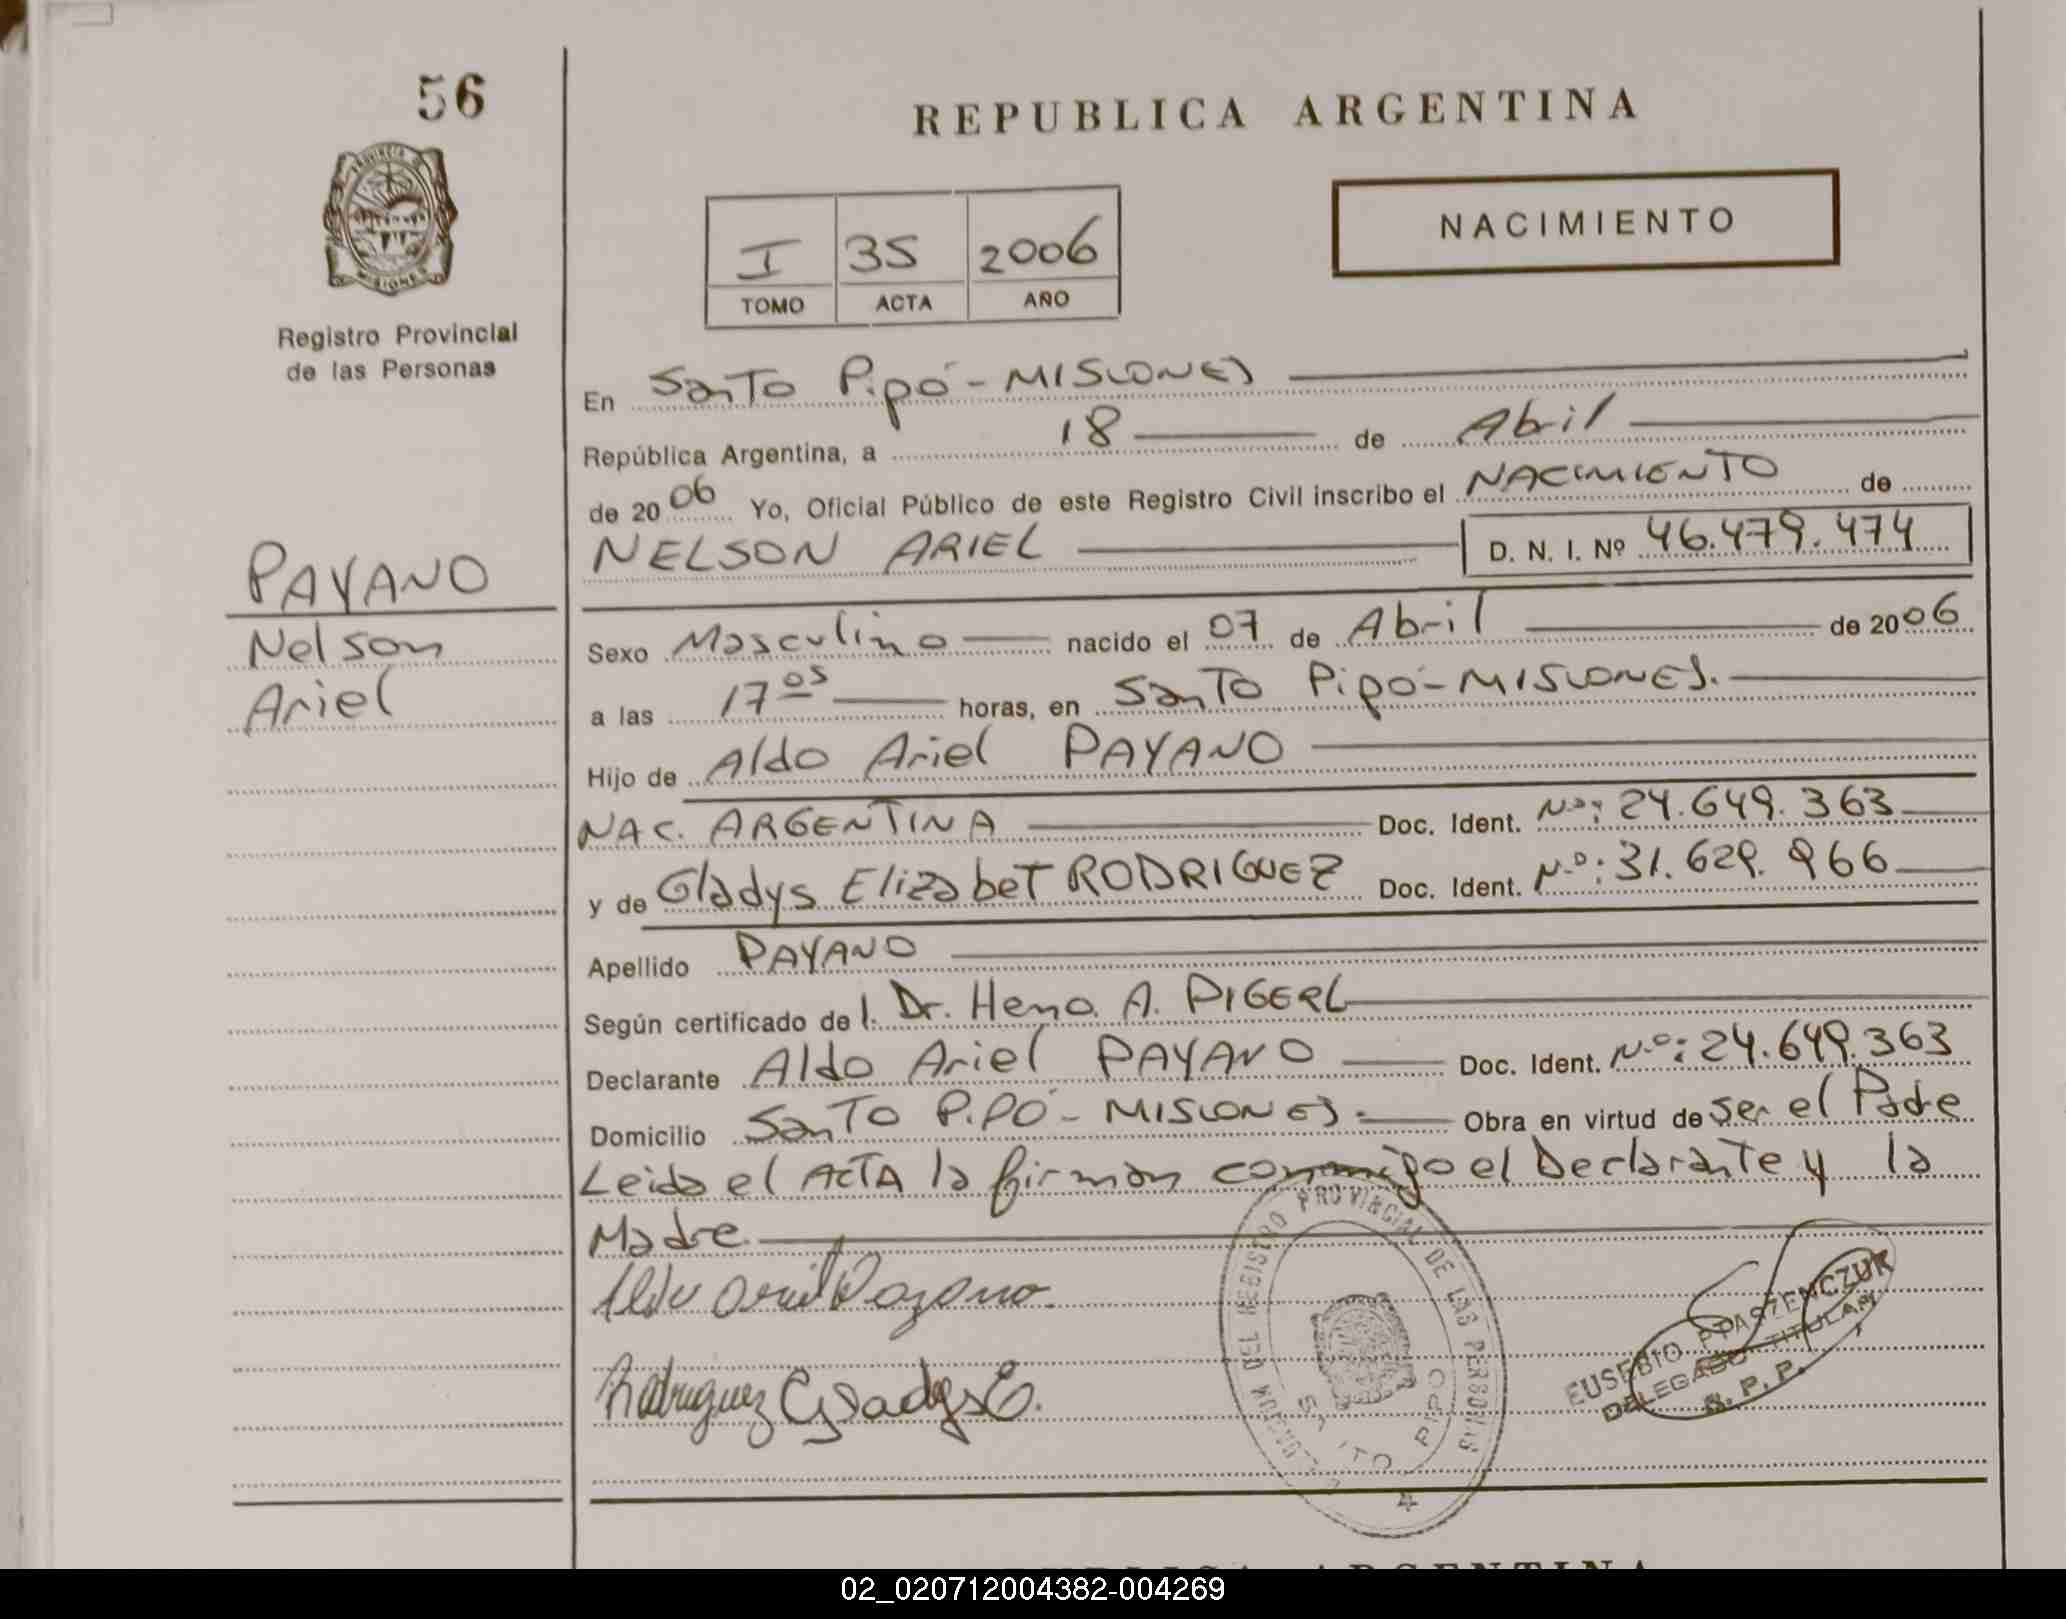 56
REPUBLICA ARGENTINA
PROVINCIA DE MISIONES
Registro Provincial
de las Personas
NACIMIENTO
I 35 2006
TOMO ACTA AÑO
En Santo Pipó - MISIONES
República Argentina, a 18 de Abril
de 2006 Yo, Oficial Público de este Registro Civil inscribo el NACIMIENTO de
NELSON ARIEL D. N. I. Nº 46.479.474
PAYANO
Nelson
Ariel
Sexo Masculino nacido el 07 de Abril de 2006
a las 17 05 horas, en Santo Pipó - MISIONES.
Hijo de Aldo Ariel PAYANO
NAC. ARGENTINA Doc. Ident. Nº: 24.649.363
y de Gladys Elizabet RODRIGUEZ Doc. Ident. Nº: 31.629.966
Apellido PAYANO
Según certificado de l. Dr. A. PIGERL
Declarante Aldo Ariel PAYANO Doc. Ident. Nº: 24.649.363
Domicilio Santo Pipó - MISIONES.- Obra en virtud de ser el Padre
Leida el ACTA la firman conmigo el Declarante y la
Madre.
Aldo Ariel Payano.
Rodriguez Gladys E.
DEL REGISTRO PROVINCIAL DE LAS PERSONAS
SANTO PIPO
EUSEBIO
DELEGADO TITULAR
ARGENTINA
02_020712004382-004269